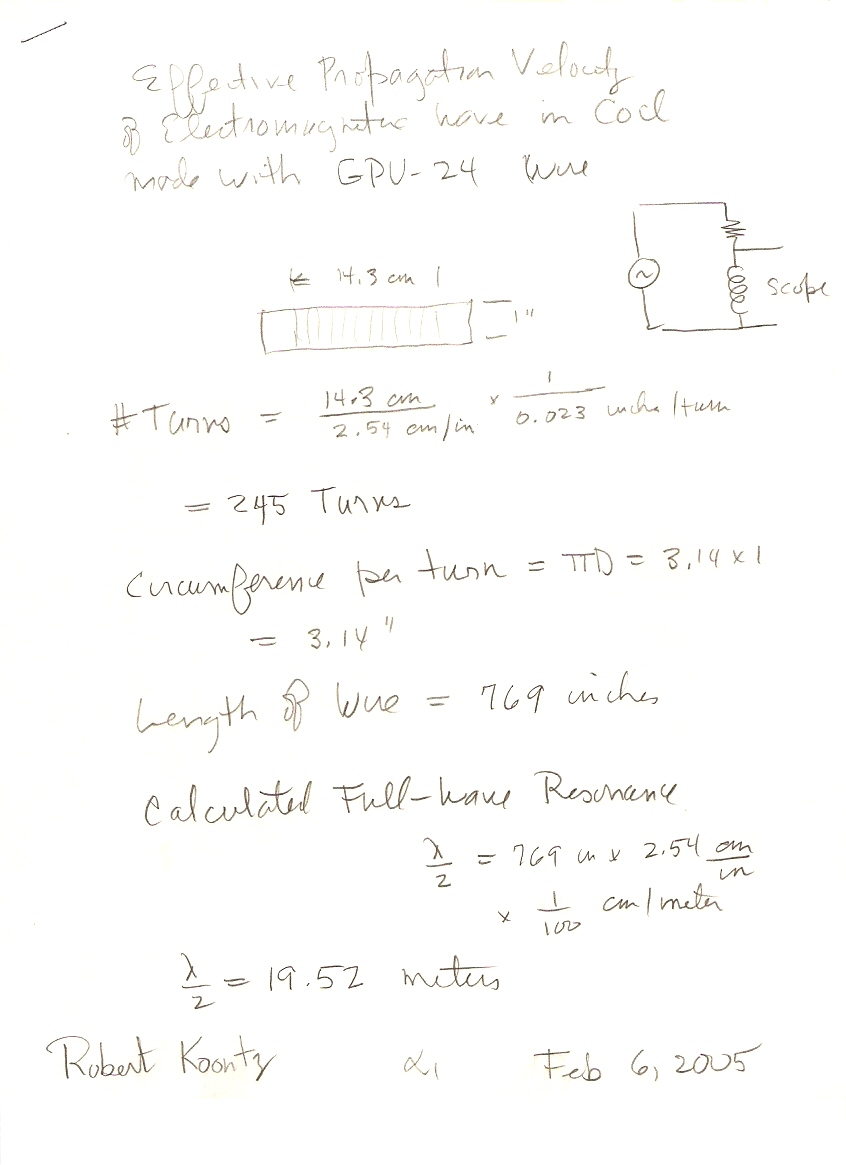 Effective Propagation Velocity
of Electromagnetic wave in Coil
made with GPU-24 Wire
14.3 cm
1"
~
Scope
# Turns = 14.3 cm / 2.54 cm/in × 1 / 0.023 inche/turn
= 245 Turns
Circumference per turn = πD = 3.14 x 1
= 3.14"
Length of Wire = 769 inches
Calculated Full-wave Resonance
λ/2 = 769 in x 2.54 cm/in
× 1/100 cm/meter
λ/2 = 19.52 meters
Robert Koontz α1 Feb 6, 2005